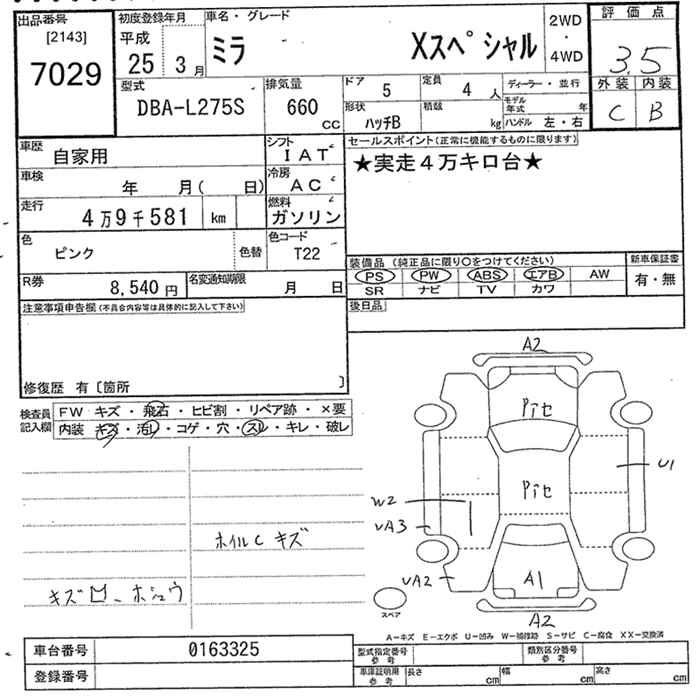 出品番号 初度登録年月 車名・グレード 2WD ・ 4WD 評価点
[2143] 平成 ミラ Xスペシャル 3.5
7029 25 3月 外装 内装
C B
型式 排気量 ドア 5 定員 4人 ディーラー・並行
DBA-L275S 660 CC 形状 ハッチB 積載 kg モデル年式 年
ハンドル 左・右
車歴 自家用 シフト IAT セールスポイント(正常に機能するものに限ります)
★実走4万キロ台★
車検 年 月( 日) 冷房 AC
走行 4万9千581 km 燃料 ガソリン
色 ピンク 色替 色コード T22
装備品(純正品に限り○をつけてください) 新車保証書
PS PW ABS エアB AW 有・無
SR ナビ TV カワ
R券 8,540円 名変通知期限 月 日
後日品
注意事項申告欄(不具合内容等は具体的に記入して下さい)
修復歴 有〔箇所 〕
検査員記入欄 FW キズ・飛石・ヒビ割・リペア跡・×要
内装 キズ・汚れ・コゲ・穴・スレ・キレ・破レ
A2
Pﾃセ
Pﾃセ
U1
W2
UA3
ホイルC キズ
UA2
A1
A2
スペア
A-キズ E-エクボ U-凹み W-補修跡 S-サビ C-腐食 XX-交換済
車台番号 0163325
登録番号
型式指定番号 参考 類別区分番号 参考
車庫証明用 参考 長さ cm 幅 cm 高さ cm